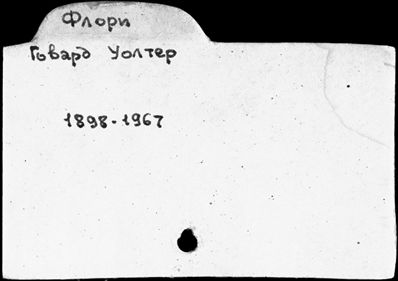 Флори
Говард Уолтер
1898-1967